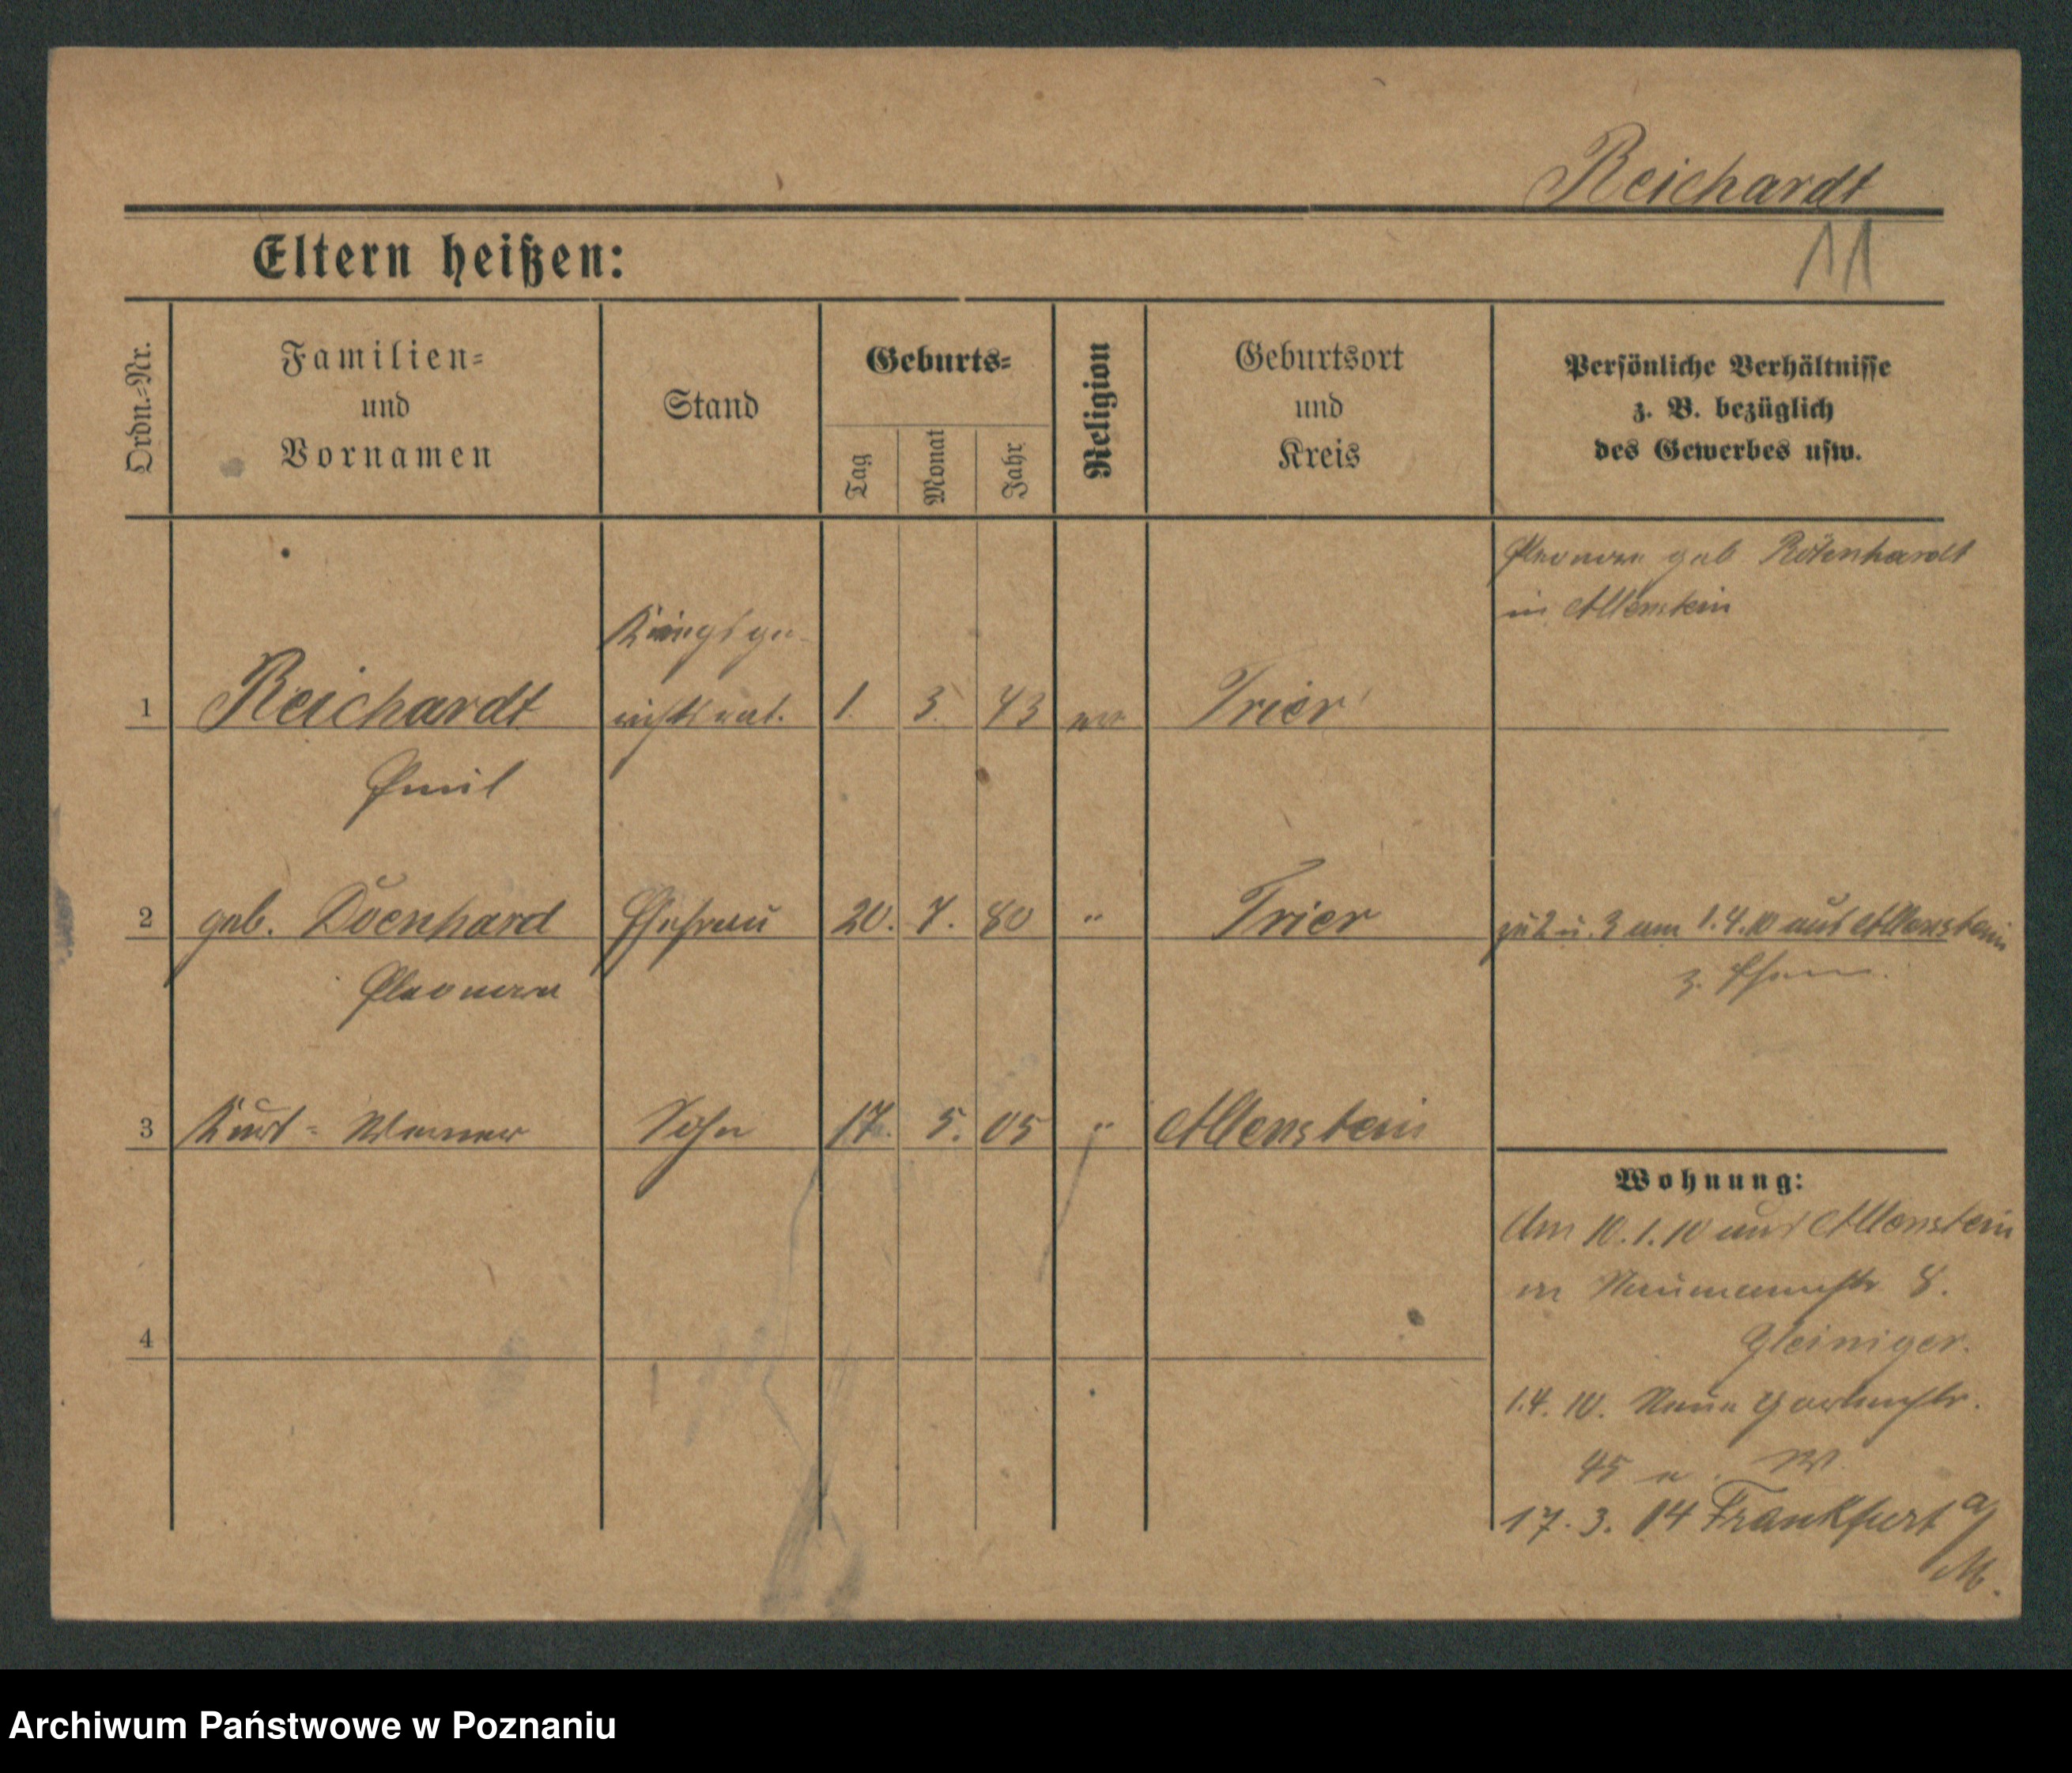 Reichardt
11
Eltern heißen:
Ordn.-Nr.
Familien-
und
Vornamen
Stand
Geburts-
Tag
Monat
Jahr
Religion
Geburtsort
und
Kreis
Persönliche Verhältnisse
z. B. bezüglich
des Gewerbes usw.
Eleonore geb
in Allenstein
Kriegsge-
1 Reichardt richtsrat. 1. 3. 43 ev Trier
Emil
2 geb. Ehefrau 20. 7. 80 " Trier zu 2 u. 3 am 1.4.10 aus Allenstein
Eleonore z. Ehem.
3 Kurt- Werner Sohn 17. 5. 05 " Allenstein
Wohnung:
Am 10.1.10 aus Allenstein
Naumannstr 8.
4
Gleiniger.
1.4.10. Neue Gartenstr.
45 W.
17.3.14 Frankfurt a/M.
Archiwum Państwowe w Poznaniu